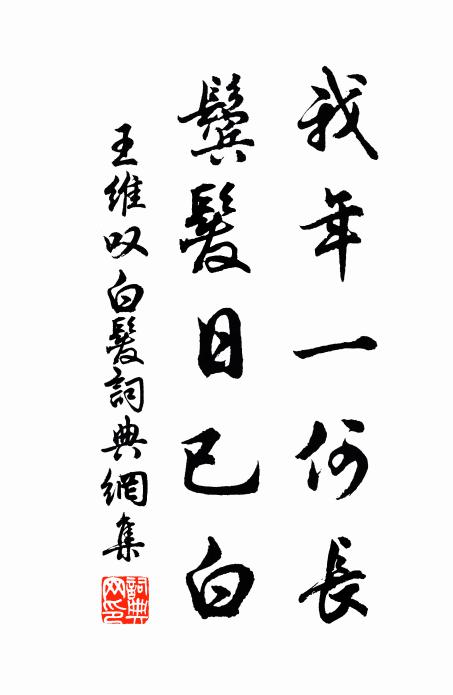 我年一何長
鬢髮日已白
王維叹白髮詞典網集
詞典網印